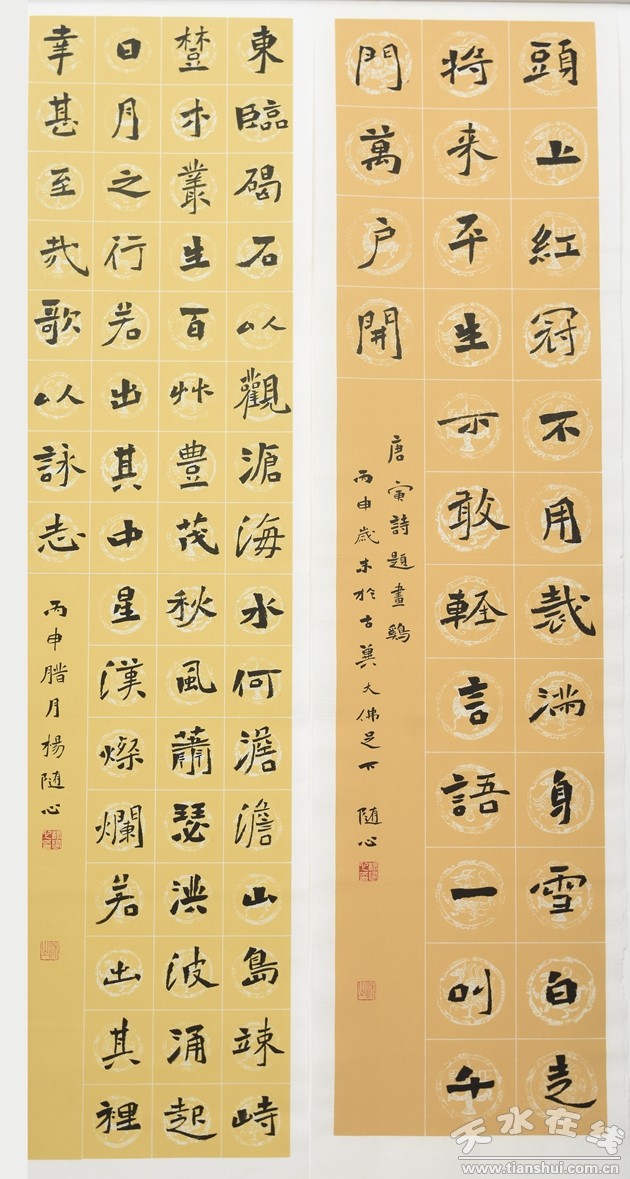 頭上紅冠不用裁满身雪白走
将来平生不敢軽言語一叫千
門萬户開
唐寅詩題畫鷄
丙申歲末於古冀大佛足下 随心
東臨碣石以觀滄海水何澹澹山島竦峙
樹木叢生百艸豐茂秋風蕭瑟洪波涌起
日月之行若出其中星漢燦爛若出其裡
幸甚至哉歌以詠志
丙申腊月楊随心
天水在线
www.tianshui.com.cn